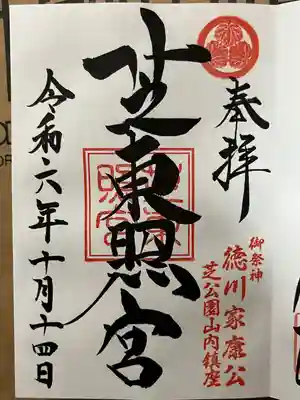 奉拝
御祭神
徳川家康公
芝公園山内鎮座
芝東照宮
令和六年十月十四日